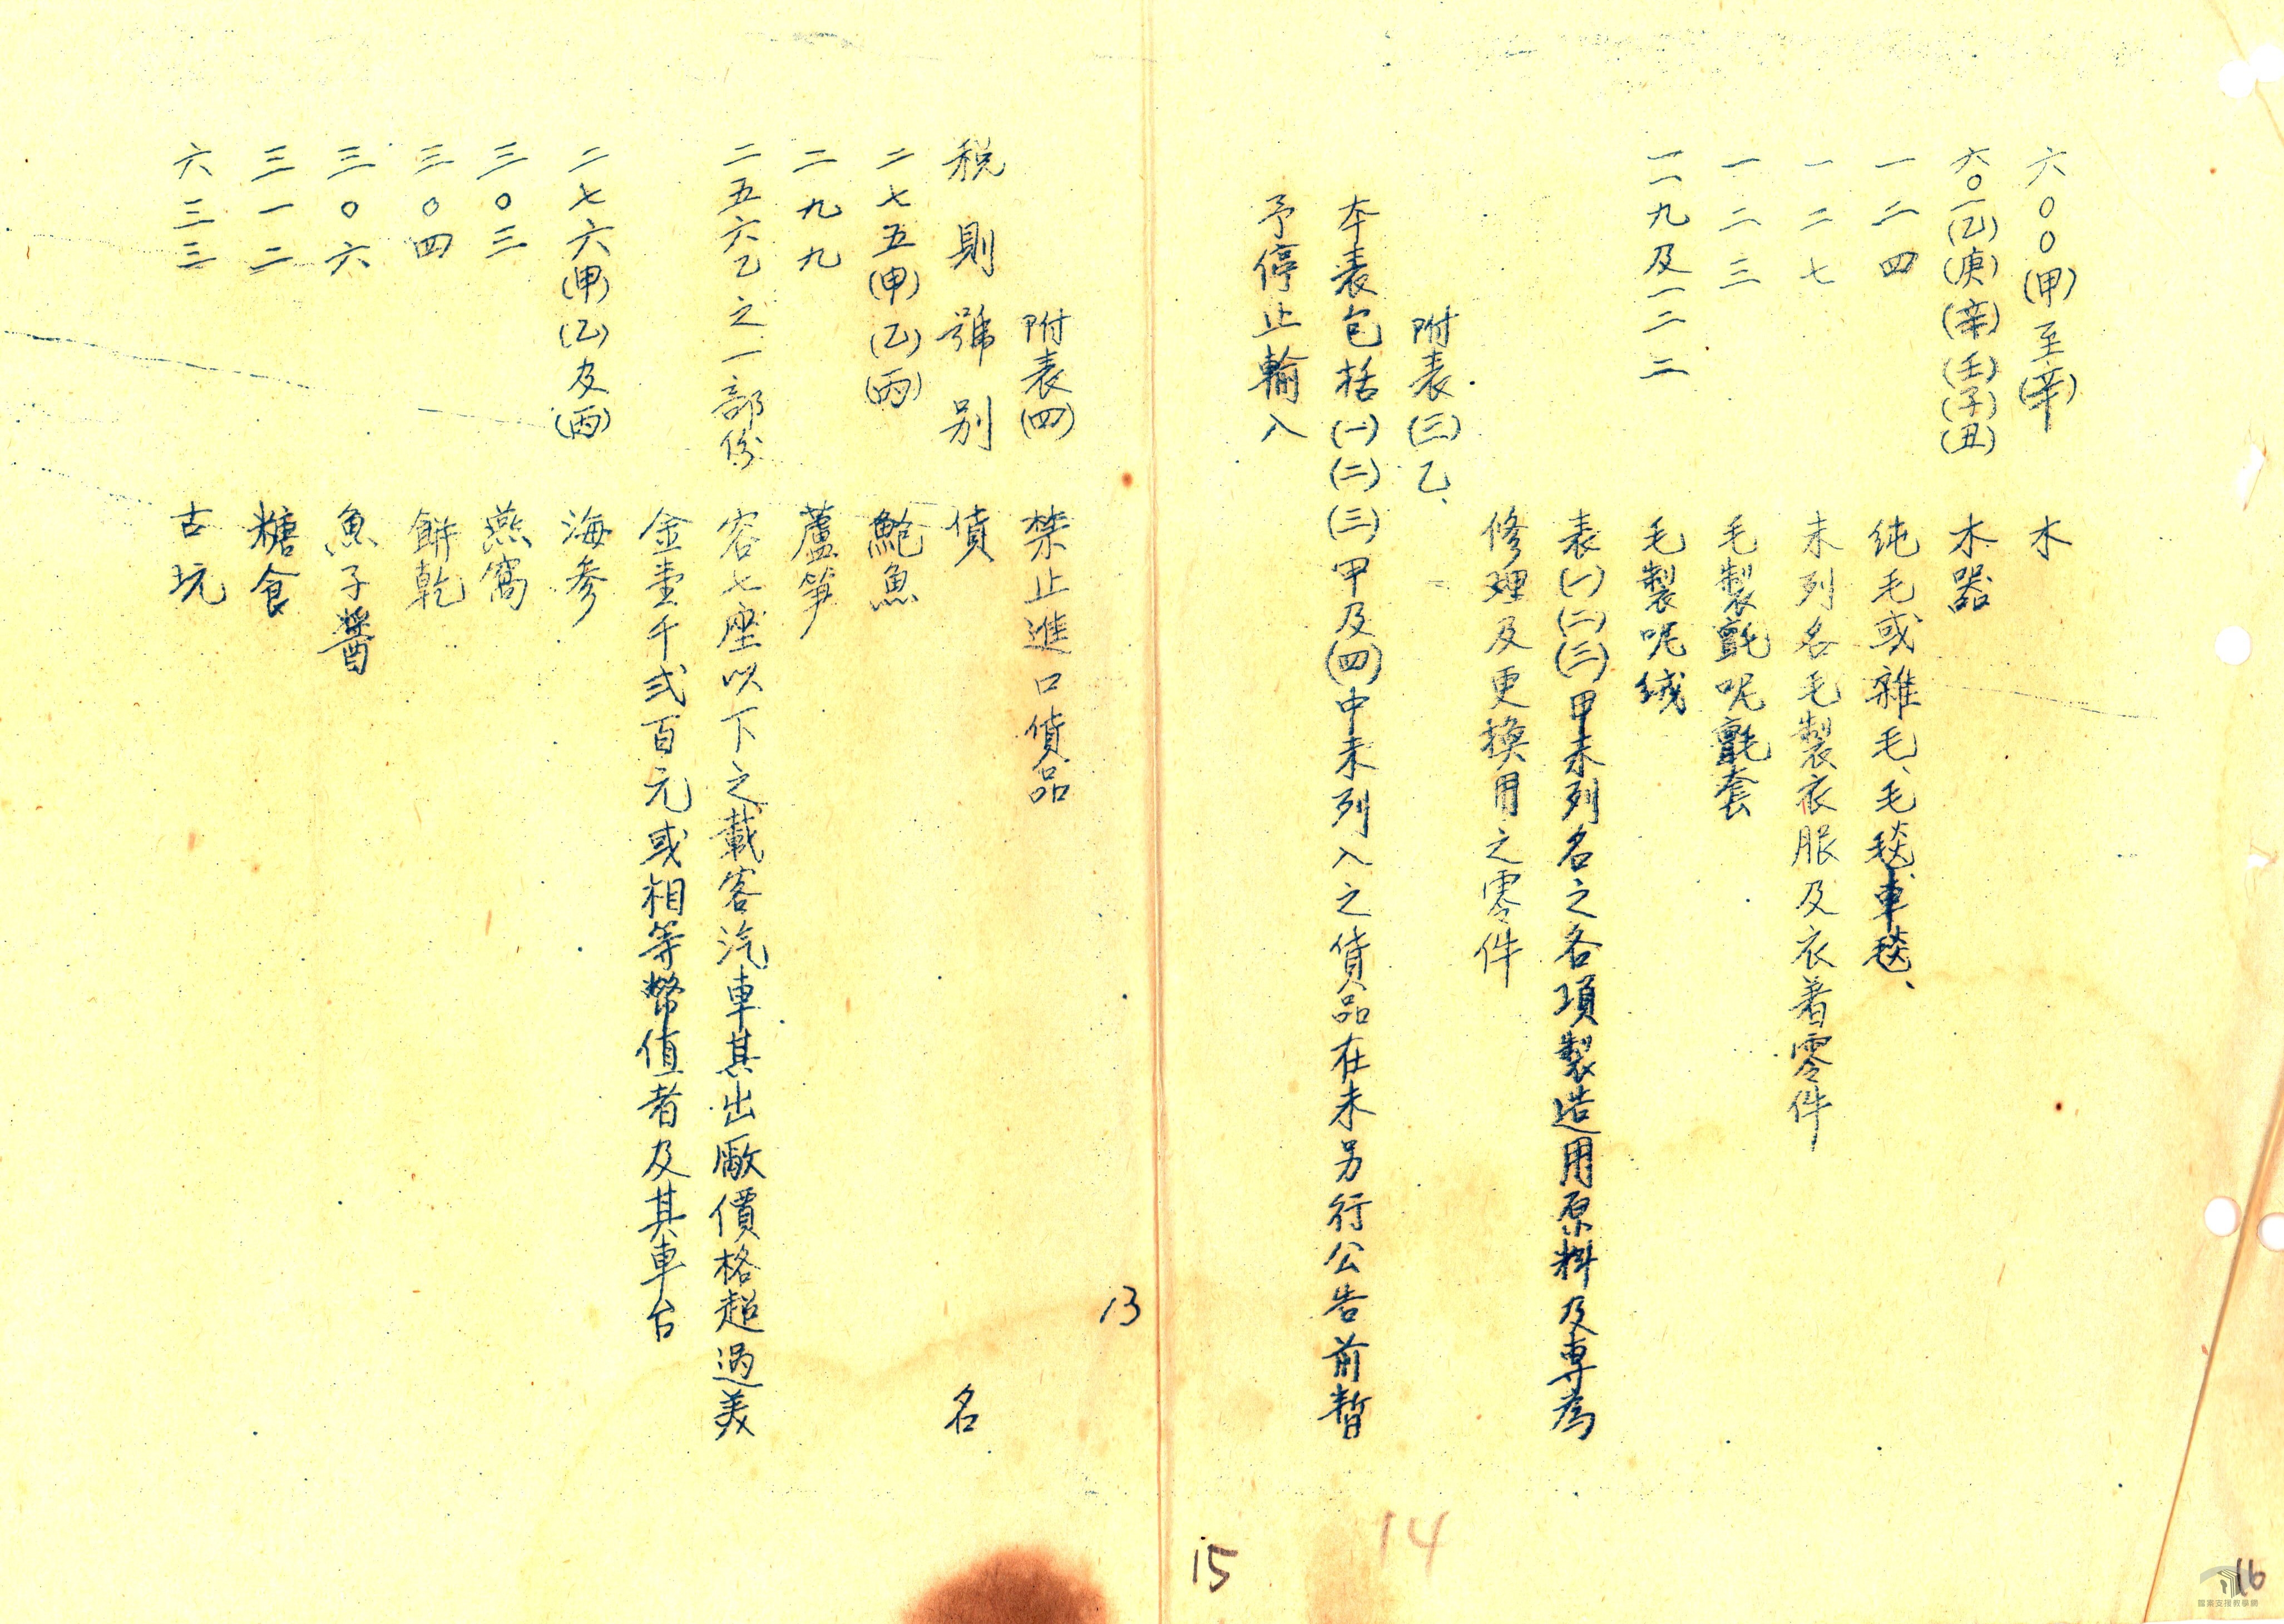 六〇〇(甲)至(辛) 木
六〇一(乙)(庚)(辛)(壬)(子)(丑) 木器
一二四 純毛或雜毛、毛毯車毯、
一二七 未列名毛製衣服及衣著零件
一二三 毛製氈呢氈套
一一九及一二二 毛製呢絨
表(一)(二)(三)甲未列名之各項製造用原料及專為
修理及更換用之零件
附表(三)乙、
本表包括(一)(二)(三)甲及(四)中未列入之貨品在未另行公告前暫
予停止輸入
附表(四) 禁止進口貨品
稅則號別 貨名
二七五(甲)(乙)(丙) 鮑魚
二九九 蘆筍
二五六乙之一部份 容七座以下之載客汽車其出廠價格超過美
金壹千弍百元或相等幣值者及其車台
二七六(甲)(乙)及(丙) 海參
三〇三 燕窩
三〇四 餅乾
三〇六 魚子醬
三一二 糖食
六三三 古玩
13
14
15
16